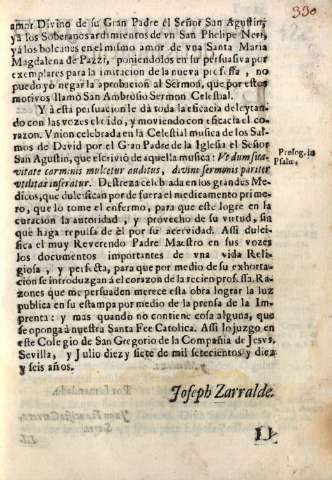 330
amor Divino de su Gran Padre el Señor San Agustin,
ya los Soberanos ardimientos de vn San Phelipe Neri,
yá los bolcanes en el mismo amor de vna Santa Maria
Magdalena de Pazzi, poniendolos en su persuasiva por
exemplares para la imitacion de la nueva professa, no
puedo yo negar la aprobacion al Sermon, que por estos
motivos llamó San Ambrosio Sermon Celestial.
Y à esta persuasion le dà toda la eficacia deleytan-
do con las vozes el oìdo, y moviendo con eficacia el co-
razon. Vnion celebrada en la Celestial musica de los Sal-
mos de David por el Gran Padre de la Iglesia el Señor
San Agustin, que escriviò de aquella musica: Vt dum sua-
vitate carminis mulcetur auditus, divini sermonis pariter
vtilitas inseratur. Destreza celebrada en los grandes Me-
dicos, que dulcifican por de fuera el medicamento prime-
ro, que lo tome el enfermo, para que este logre en la
curacion la autoridad, y provecho de su virtud, sin
que haga repulsa de èl por su acervidad. Assi dulci-
fica el muy Reverendo Padre Maestro en sus vozes
los documentos importantes de vna vida Reli-
giosa, y perfecta, para que por medio de su exhorta-
cion se introduzgan à el corazon de la recien professa. Ra-
zones que me persuaden merece esta obra lograr la luz
publica en su estampa por medio de la prensa de la Im-
prenta: y mas quando no contiene cosa alguna, que
se oponga à nuestra Santa Fee Catolica. Assi lo juzgo en
este Colegio de San Gregorio de la Compañia de Jesvs,
Sevilla, y Julio diez y siete de mil setecientos y diez
y seis años.
Proleg. in
Psalm.
Joseph Zarralde.